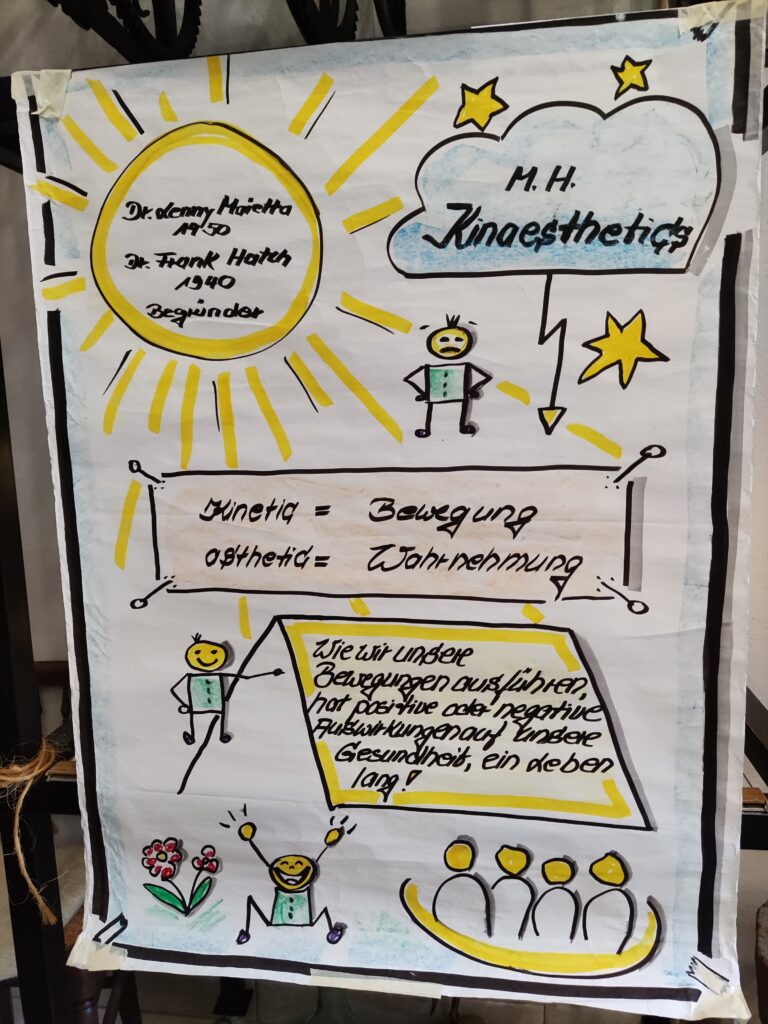 Dr. Lenny Maietta
1950
Dr. Frank Hatch
1940
Begründer
M. H.
Kinaesthetics
Kinetic = Bewegung
asthetic = Wahrnehmung
Wie wir unsere
Bewegungen ausführen,
hat positive oder negative
Auswirkungen auf unsere
Gesundheit, ein Leben
lang!